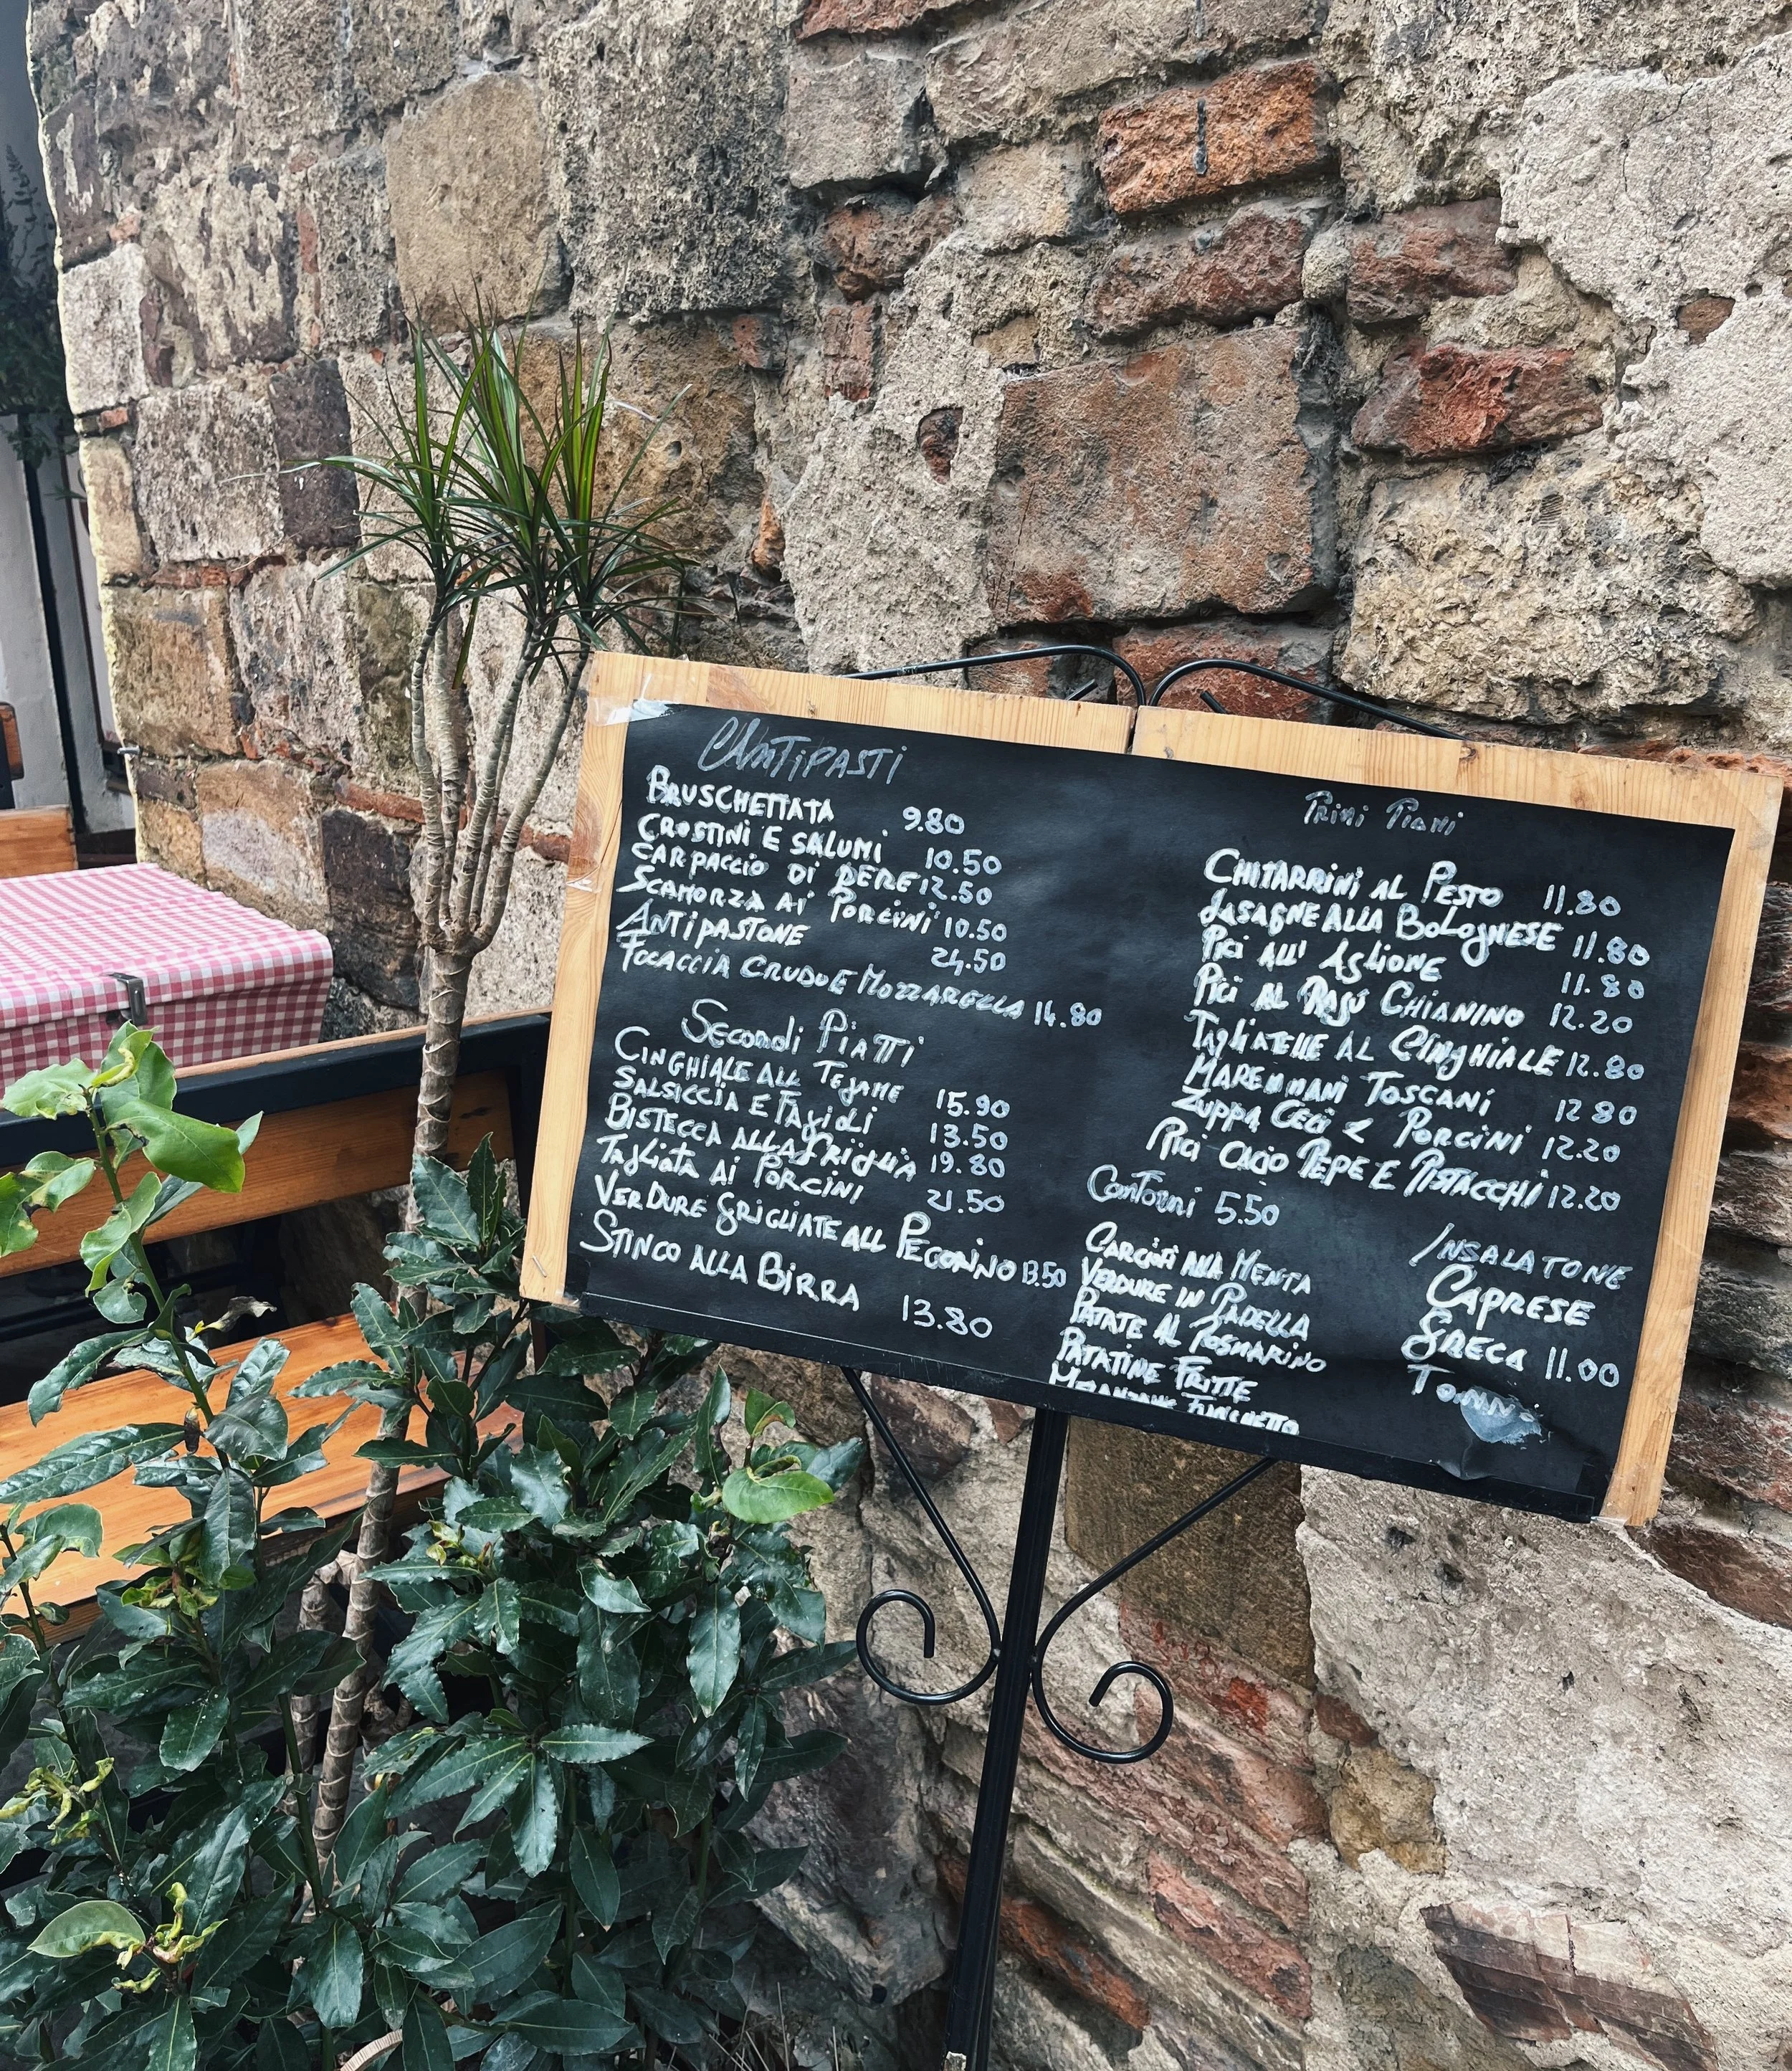 Antipasti
BRUSCHETTATA 9.80
CROSTINI E SALUMI 10.50
CARPACCIO DI PERE 12.50
SCAMORZA AI PORCINI 10.50
ANTIPASTONE 24.50
FOCACCIA CRUDO E MOZZARELLA 14.80
Secondi PiaTTi
CINGHIALE ALL TEgAME 15.90
SALSICCIA E FAgIOLI 13.50
BISTECCA ALLA GRigLiA 19.80
TAgLiATA Ai PORCINI 21.50
VERDURE GRIGLIATE ALL PECORINO 13.50
STINCO ALLA BIRRA 13.80
Primi Piatti
CHITARRINI AL PESTO 11.80
LASAGNE ALLA BOLOgNESE 11.80
PICI ALL' AgLIONE 11.80
PICI AL RAGÙ CHIANINO 12.20
TAgLiATELLE AL CINgHIALE 12.80
MAREMMANI TOSCANI 12 80
ZUPPA CECI E PORCINI 12.20
PICI CACIO PEPE E PISTACCHI 12.20
Contorni 5.50
CARCIOFI ALLA MENTA
VERDURE IN PADELLA
PATATE AL ROSMARINO
PATATINE FRITTE
INSALATONE
CAPRESE
GRECA 11.00
TONNO